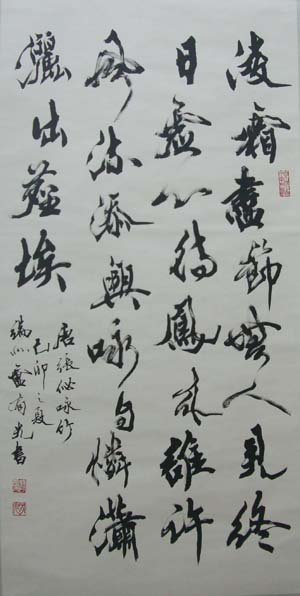 凌霜盡節無人見終
日虛心待鳳來誰許
風流添興咏自憐瀟
灑出塵埃
唐張佖咏竹
己卯之夏
盧有光書